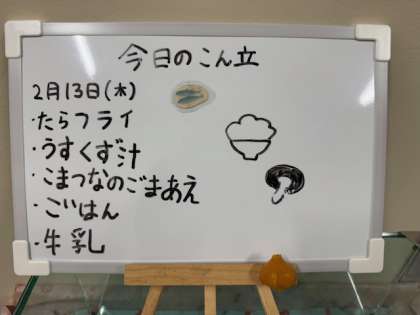 今日のこん立
2月13日(木)
・たらフライ
・うすくず汁
・こまつなのごまあえ
・ごはん
・牛乳